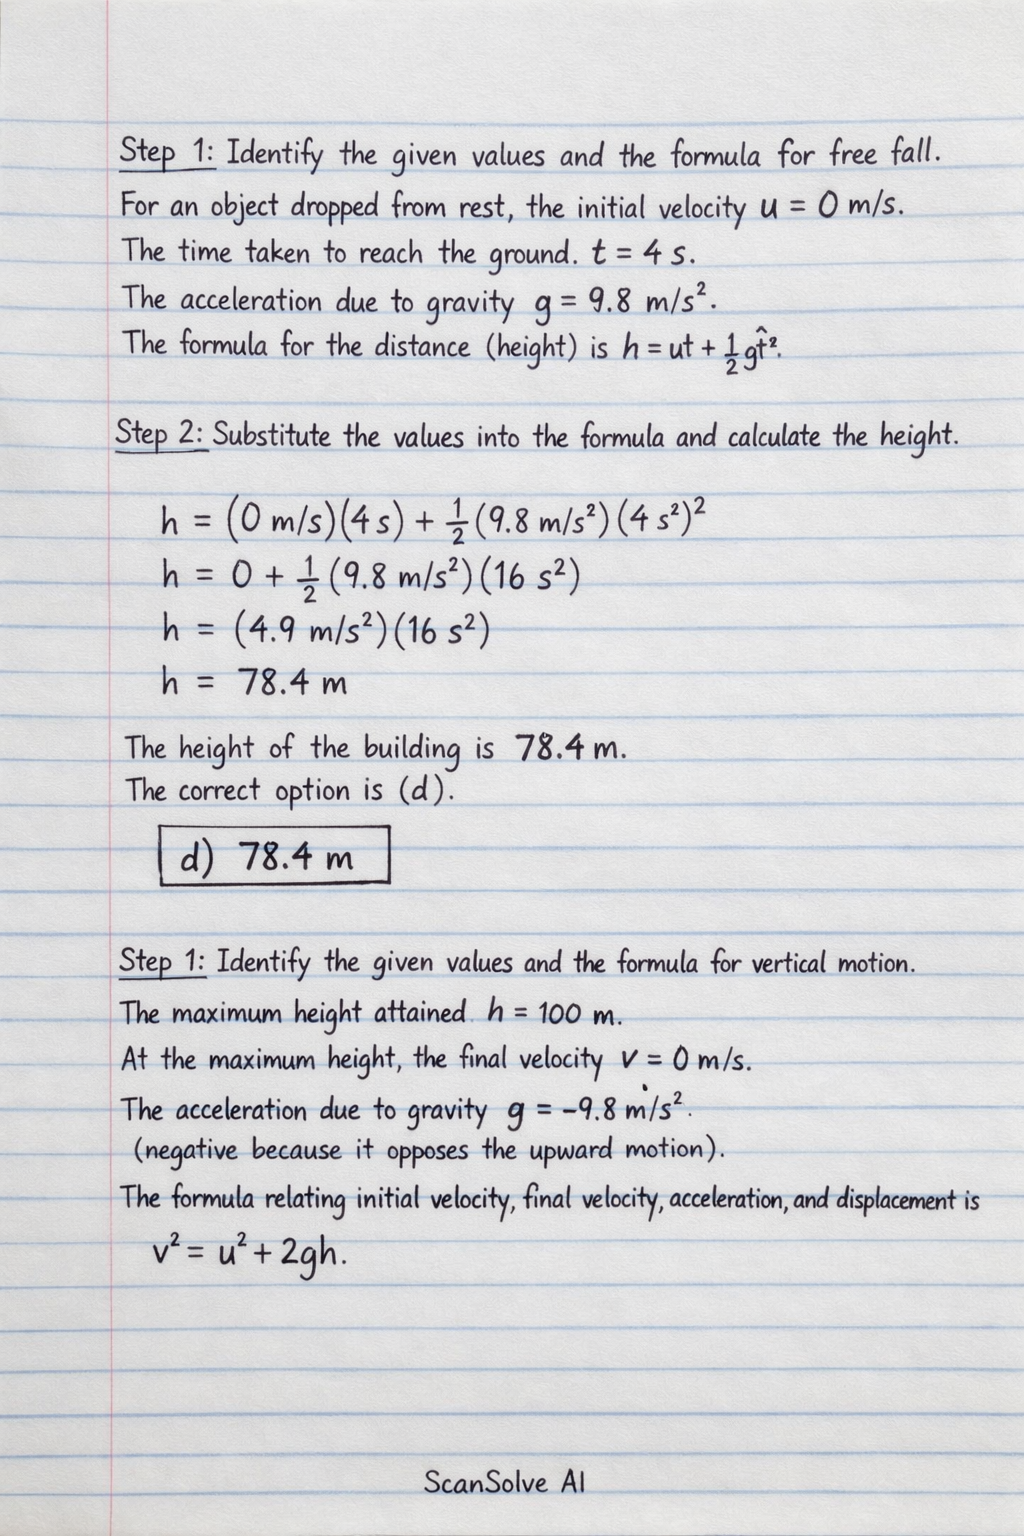 Step 1: Identify the given values and the formula for free fall.
For an object dropped from rest, the initial velocity u = 0 m/s.
The time taken to reach the ground. t = 4 s.
The acceleration due to gravity g = 9.8 m/s².
The formula for the distance (height) is h = ut + ½gt̂².
Step 2: Substitute the values into the formula and calculate the height.
h = (0 m/s)(4 s) + ½(9.8 m/s²)(4 s²)²
h = 0 + ½(9.8 m/s²)(16 s²)
h = (4.9 m/s²)(16 s²)
h = 78.4 m
The height of the building is 78.4 m.
The correct option is (d).
d) 78.4 m
Step 1: Identify the given values and the formula for vertical motion.
The maximum height attained h = 100 m.
At the maximum height, the final velocity v = 0 m/s.
The acceleration due to gravity g = -9.8 m/s².
(negative because it opposes the upward motion).
The formula relating initial velocity, final velocity, acceleration, and displacement is
v² = u² + 2gh.
ScanSolve AI